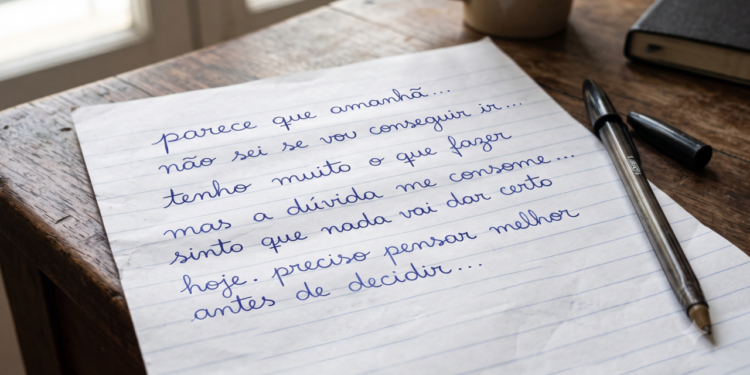 parece que amanhã...
não sei se vou conseguir ir...
tenho muito o que fazer
mas a dúvida me consome...
sinto que nada vai dar certo
hoje. preciso pensar melhor
antes de decidir...